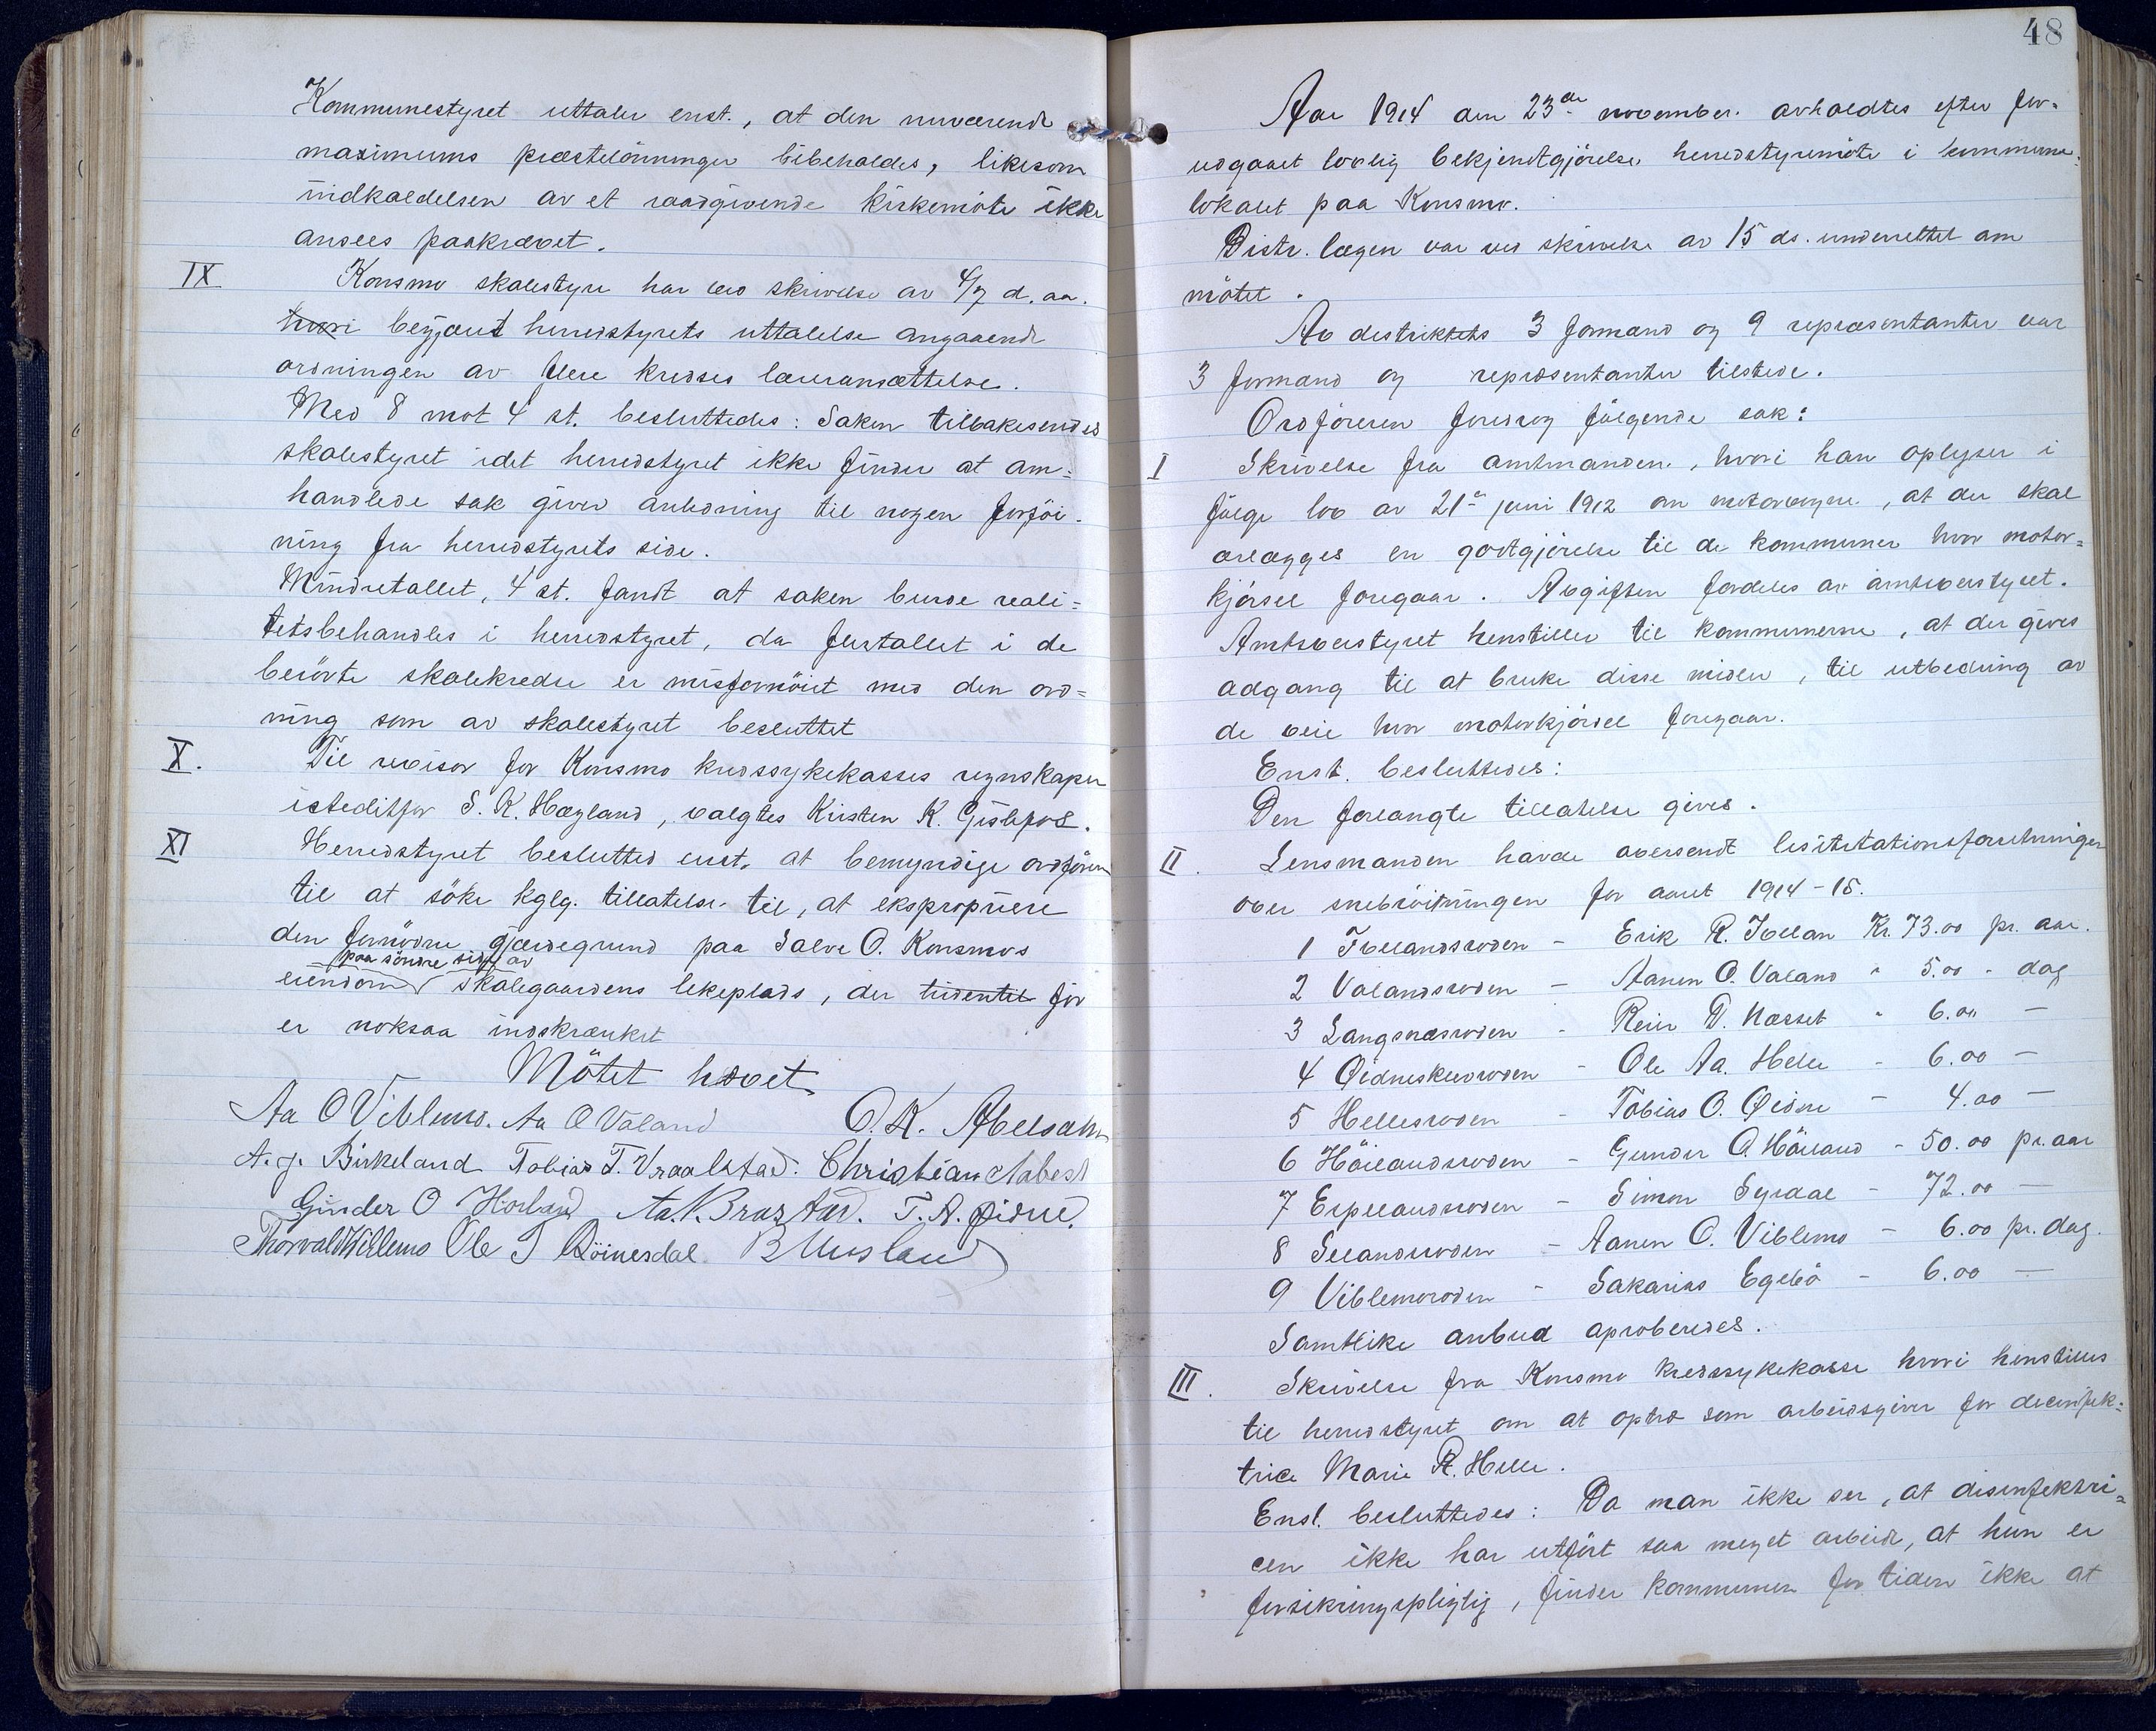 Kommunestyret uttaler enst., at den nuværende
maximums præstelönninger bibeholdes, likesom
indkaldelsen av et raadgivende kirkemöte ikke
ansees paakrævet.
IX Konsmo skolestyre har ved skrivelse av 4/7 d. aa.
hvori begjært herredstyrets uttalelse angaaende
ordningen av flere kredses læreransættelse.
Med 8 mot 4 st. besluttedes: Saken tilbakesendes
skolestyret idet herredstyret ikke finder at om=
handlede sak giver anledning til nogen forföi-
ning fra herredstyrets side.
Mindretallet, 4 st. fandt at saken burde reali=
tetsbehandles i herredstyret, da flertallet i de
berörte skolekredse er misfornöiet med den ord=
ning som av skolestyret besluttet
X. Til revisor for Konsmo kredssykekasses regnskaper
istedetfor S. K. Høgland, valgtes Kristen K. Gislefos.
XI Herredstyret beslutted enst. at bemyndige ordförer
til at söke kglg. tillatelse til, at ekspropriere
den fornödne gjærdegrund paa Salve O. Konsmos
paa söndre side av
eiendom skolegaardens lekeplads, der tidentil för
er noksaa indskrænket
Mötet hævet
Aa O Viblemo. Aa O Valand O. K. Abelsahn
A. J. Birkeland Tobias T. Vraalstad. Christian Aabest
Gunder O Höiland Aa. N. Braastad. T. A. Øidne.
Thorvald Viblemo Ole T Röinesdal.
48
Aar 1914 den 23de november. avholdtes efter for-
udgaaet lovlig bekjendtgjörelse herredstyremöte i kommune-
lokalet paa Konsmo.
Distr. lægen var ved skrivelse av 15 ds. underrettet om
mötet.
Av distriktets 3 formænd og 9 repræsentanter var
3 formænd og repræsentanter tilstede.
Ordföreren foredrog fölgende sak:
I Skrivelse fra amtmanden, hvori han oplyser i
fölge lov av 21de juni 1912 om motorvogne, at der skal
erlægges en godtgjörelse til de kommuner hvor motor=
kjörsel foregaar. Avgiften fordeles av amtsveistyret.
Amtsveistyret henstiller til kommunerne, at der gives
adgang til at bruke disse midler, til utbedring av
de veie hvor motorkjörsel foregaar.
Enst. besluttedes:
Den forlangte tillatelse gives.
II. Lensmanden havde oversendt lisitationsforretningen
over snebröitningen for aaret 1914-15.
1 Ivelandsroden - Erik R. Ivelan Kr. 73.00 pr. aar.
2 Valandsroden - Aanen O. Valand " 5.00 - dag
3 Langnæsroden - Reier T. Næsset " 6.00 -
4 Øidneskleivroden - Ole Aa. Helle - 6.00 -
5 Hellesroden - Tobias O. Øidne - 4.00 -
6 Höilandsroden - Gunder O. Höiland - 50.00 pr. aar
7 Espelandsroden - Simon Syrdal - 72.00 -
8 Selandsroden - Aanen O. Viblemo - 6.00 pr. dag.
9 Viblemoroden - Sakarias Egebö - 6.00 -
Samtlike anbud aproberedes.
III. Skrivelse fra Konsmo kredssykekasse hvori henstilles
til herredstyret om at optræ som arbeidsgiver for desinfek=
trice Marie R. Helle.
Enst. besluttedes: Da man ikke ser, at disinfektri=
cen ikke har utfört saa meget arbeide, at hun er
forsikringspligtig, finder kommunen for tiden ikke at